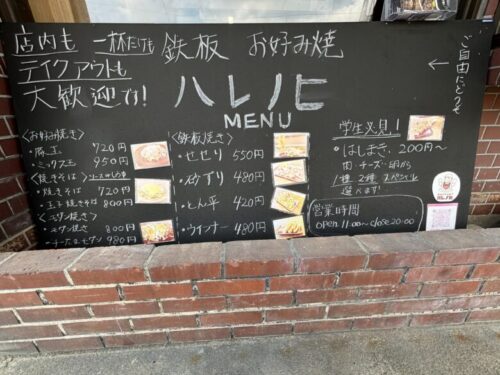 店内も 一杯だけも 鉄板 お好み焼
テイクアウトも
大歓迎です!
ハレノヒ
MENU
← ご自由にどうぞ
<お好み焼き>
・豚玉 720円
・ミックス玉 950円
<焼きそば>
・焼きそば 720円
・玉子焼そば 800円
<モダン焼き>
・モダン焼き 800円
・チーズモダン 980円
<鉄板焼き>
・せせり 550円
・ズリ 480円
・とん平 420円
・ウインナー 480円
学生必見!
・はしまき、200円~
肉・チーズ・明太から
1種 2種
選べます!
営業時間
open 11:00~close 20:00